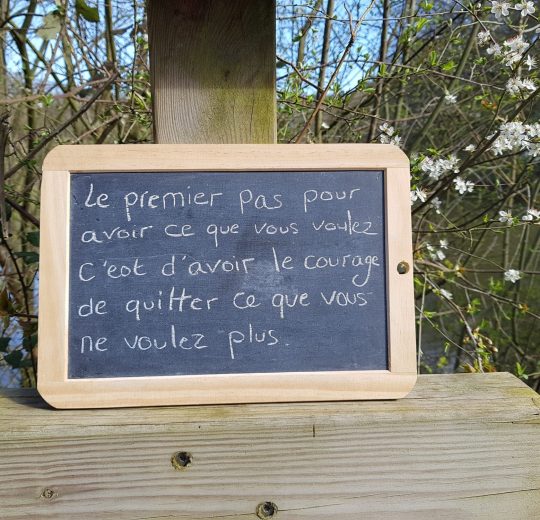 Le premier pas pour
avoir ce que vous voulez
C'est d'avoir le courage
de quitter ce que vous
ne voulez plus.